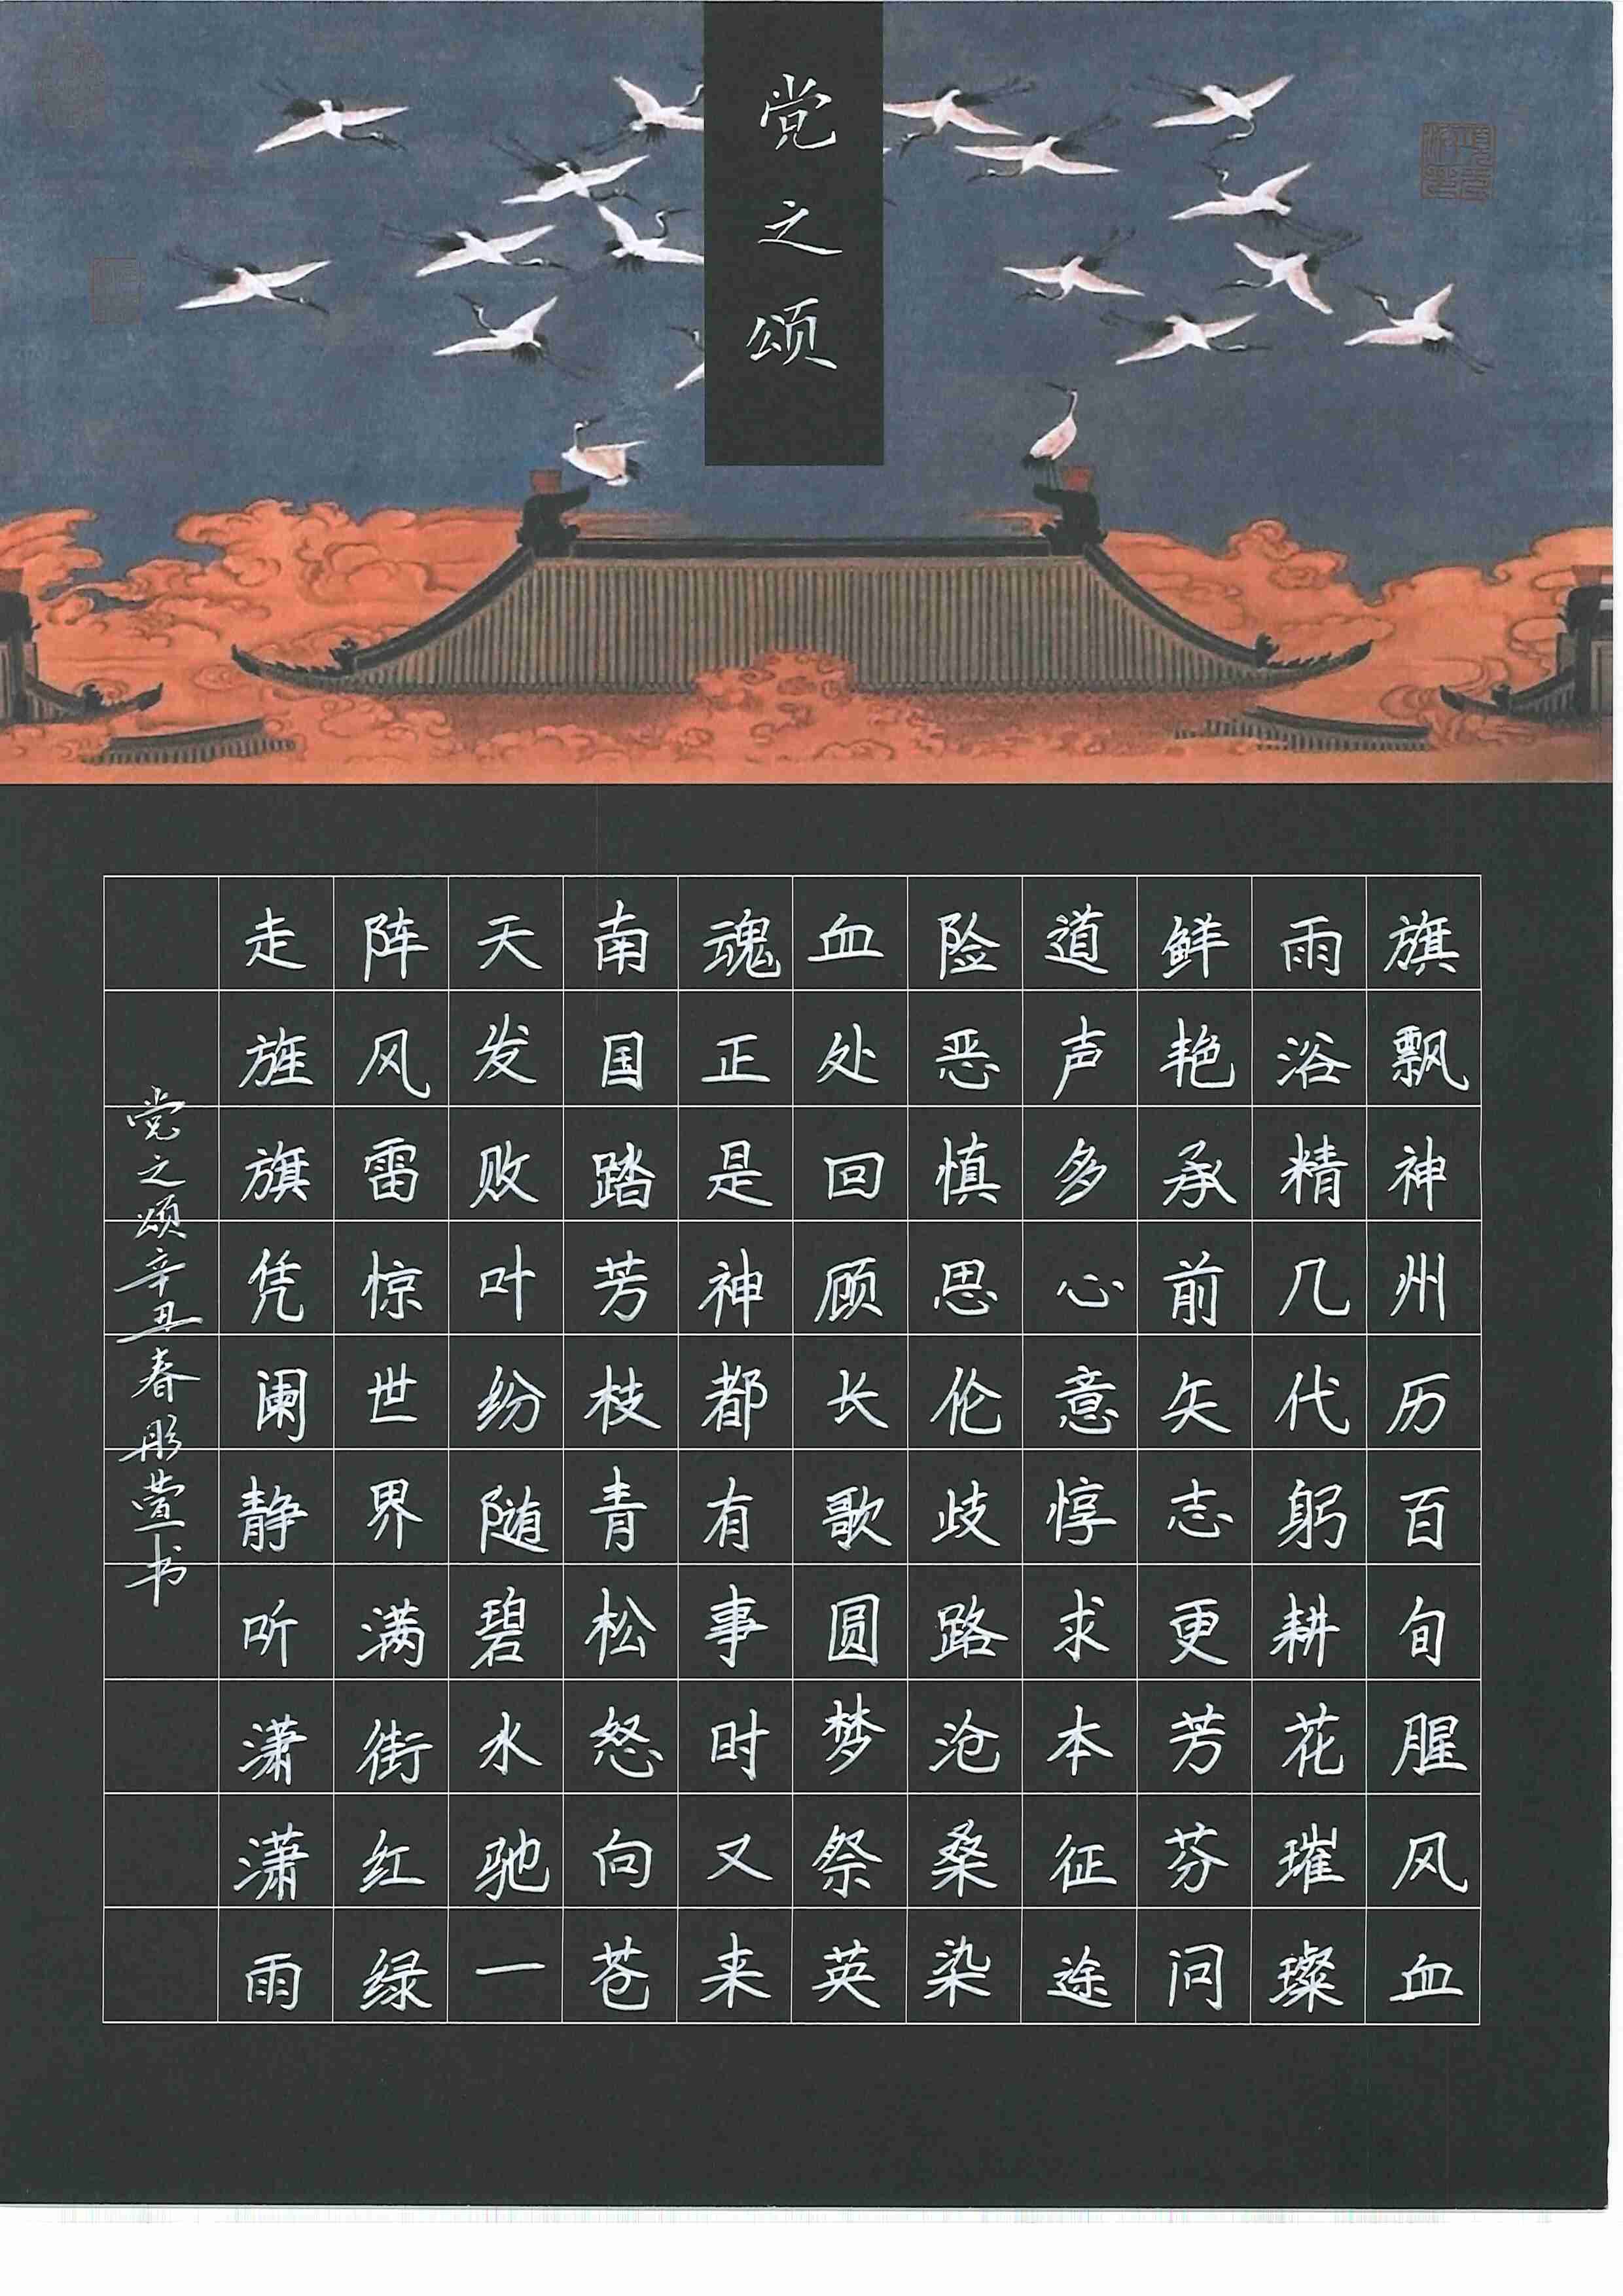 党之颂
旗飘神州历百旬腥风血
雨浴精几代躬耕花璀璨
鲜艳承前矢志更芳芬问
道声多心意惇求本征途
险恶慎思伦歧路沧桑染
血处回顾长歌圆梦祭英
魂正是神都有事时又来
南国踏芳枝青松怒向苍
天发败叶纷随碧水驰一
阵风雷惊世界满街红绿
走旌旗凭阑静听潇潇雨
党之颂辛丑春彤萱书